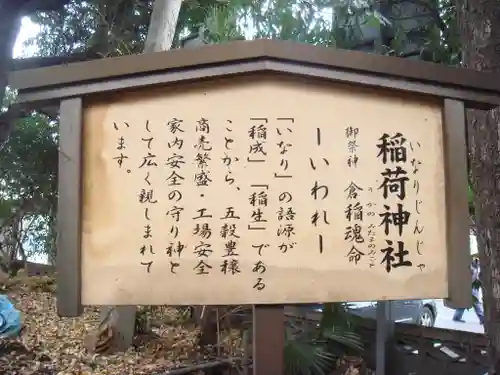 稲荷神社
いなりじんじゃ
御祭神 倉稲魂命
うかのみたまのみこと
ーいわれー
「いなり」の語源が
「稲成」「稲生」である
ことから、五穀豊穣
商売繁盛・工場安全
家内安全の守り神と
して広く親しまれて
います。